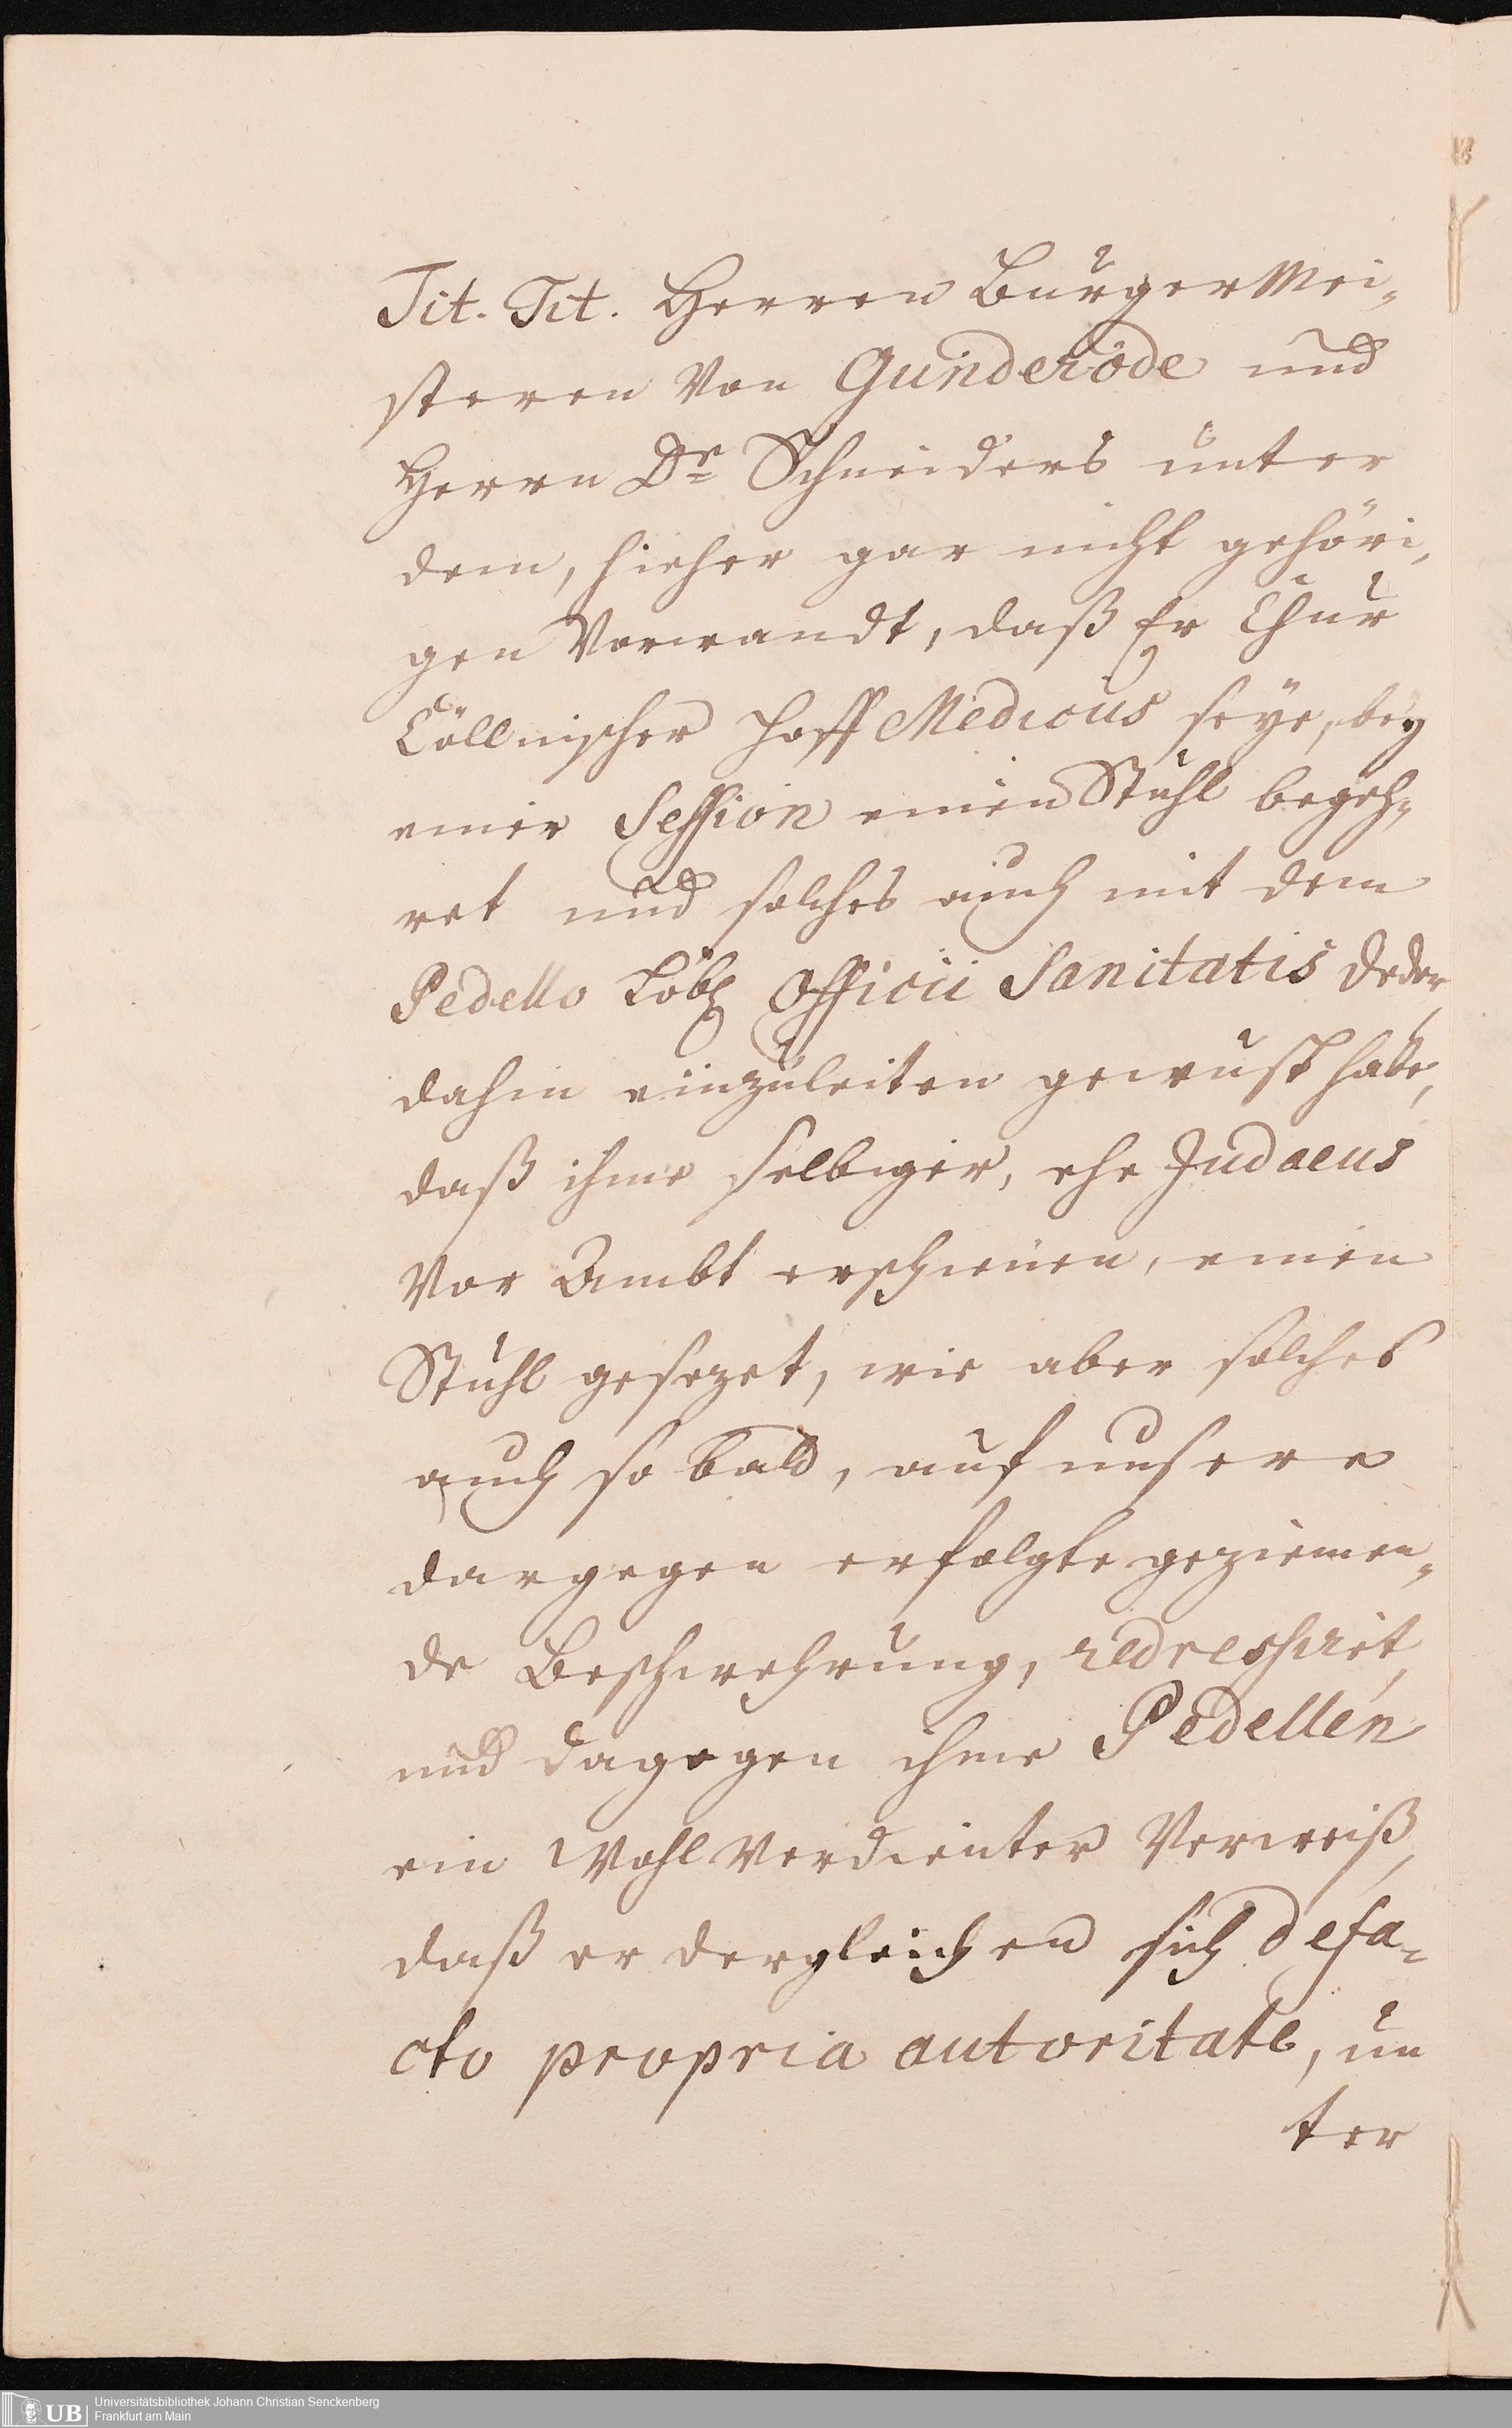 Tit. Tit. Herren Burger Mei„
steren von Gunderöde und
Herrn Dr Schneiders unter
dem, hieher gar nicht gehöri„
gen Vorwandt, daß Er Chur
Cöllnischer Hoff Medicus seye, bey
einer Session einen Stuhl begeh„
ret und solches auch mit dem
Pedello Löbl Officii Sanitatis
dahin einzuleiten gewust habe,
daß ihme selbiger, ehe Judaeus
vor Ambt erschienen, einen
Stuhl gesezet, wie aber solches
auch so bald, auf unsere
dargegen erfolgte geziemen„
de Beschwehrung, redressiret,
und dagegen ihme Pedellen
ein Wohl Verdienter Verweiß,
daß er dergleichen sich defa„
cto propria autoritate, un
ter
Universitätsbibliothek Johann Christian Senckenberg
Frankfurt am Main
UB